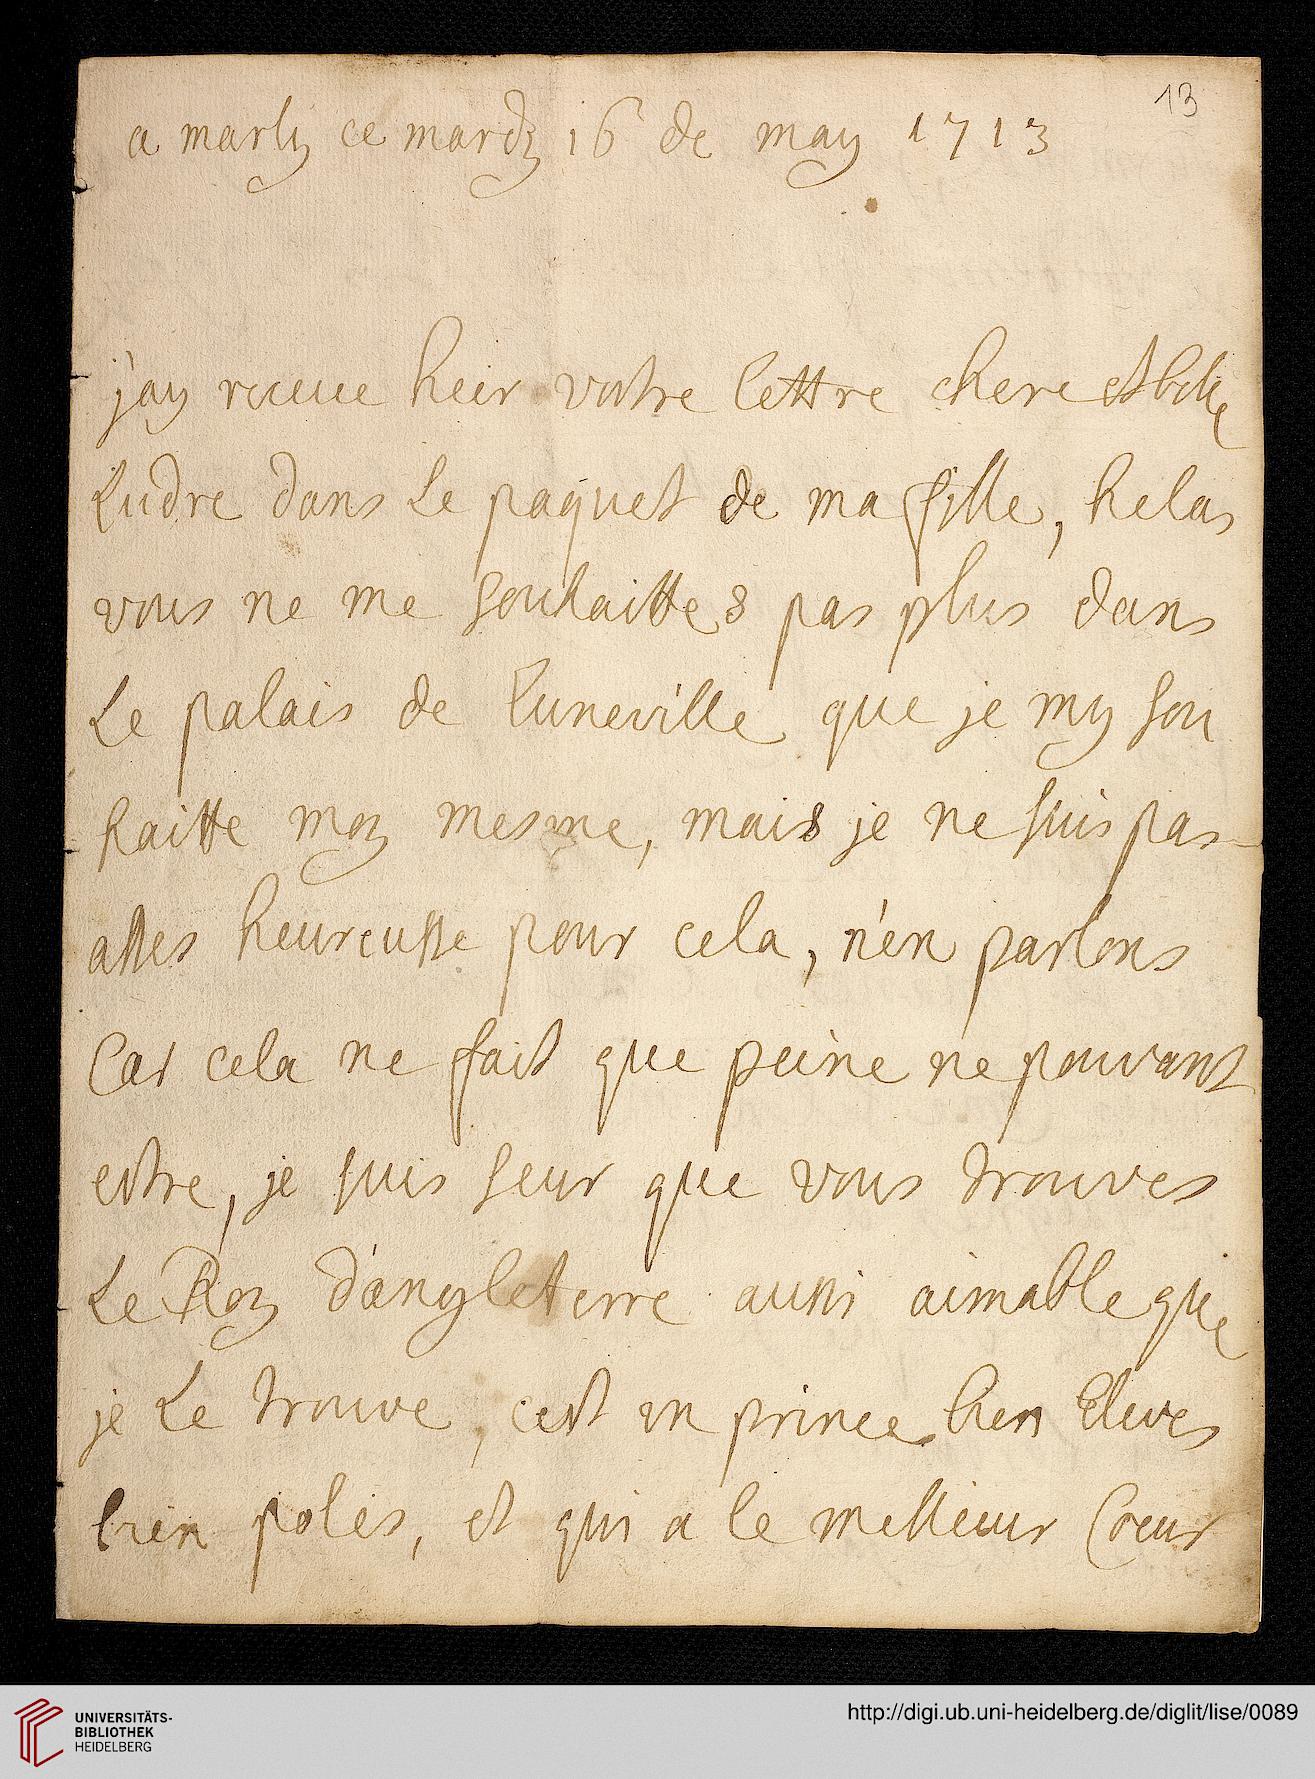 13
a marly ce mardy 16 de may 1713
j'ay receue heir vostre lettre chere et belle
Ludre dans Le paquet de ma fille, helas
vous ne me souhaittes pas plus dans
Le palais de luneville que je my sou
haitte moy mesme, mais je ne suis pas
asses heureusse pour cela, n'en parlons
Car cela ne fait que peine ne pouvant
estre, je suis seur que vous trouves
Le Roy d'angleterre aussi aimable que
je Le trouve, cest un prince bien Eleves
bien polis, et qui a le mellieur Coeur
UNIVERSITÄTS-
BIBLIOTHEK
HEIDELBERG
http://digi.ub.uni-heidelberg.de/diglit/lise/0089